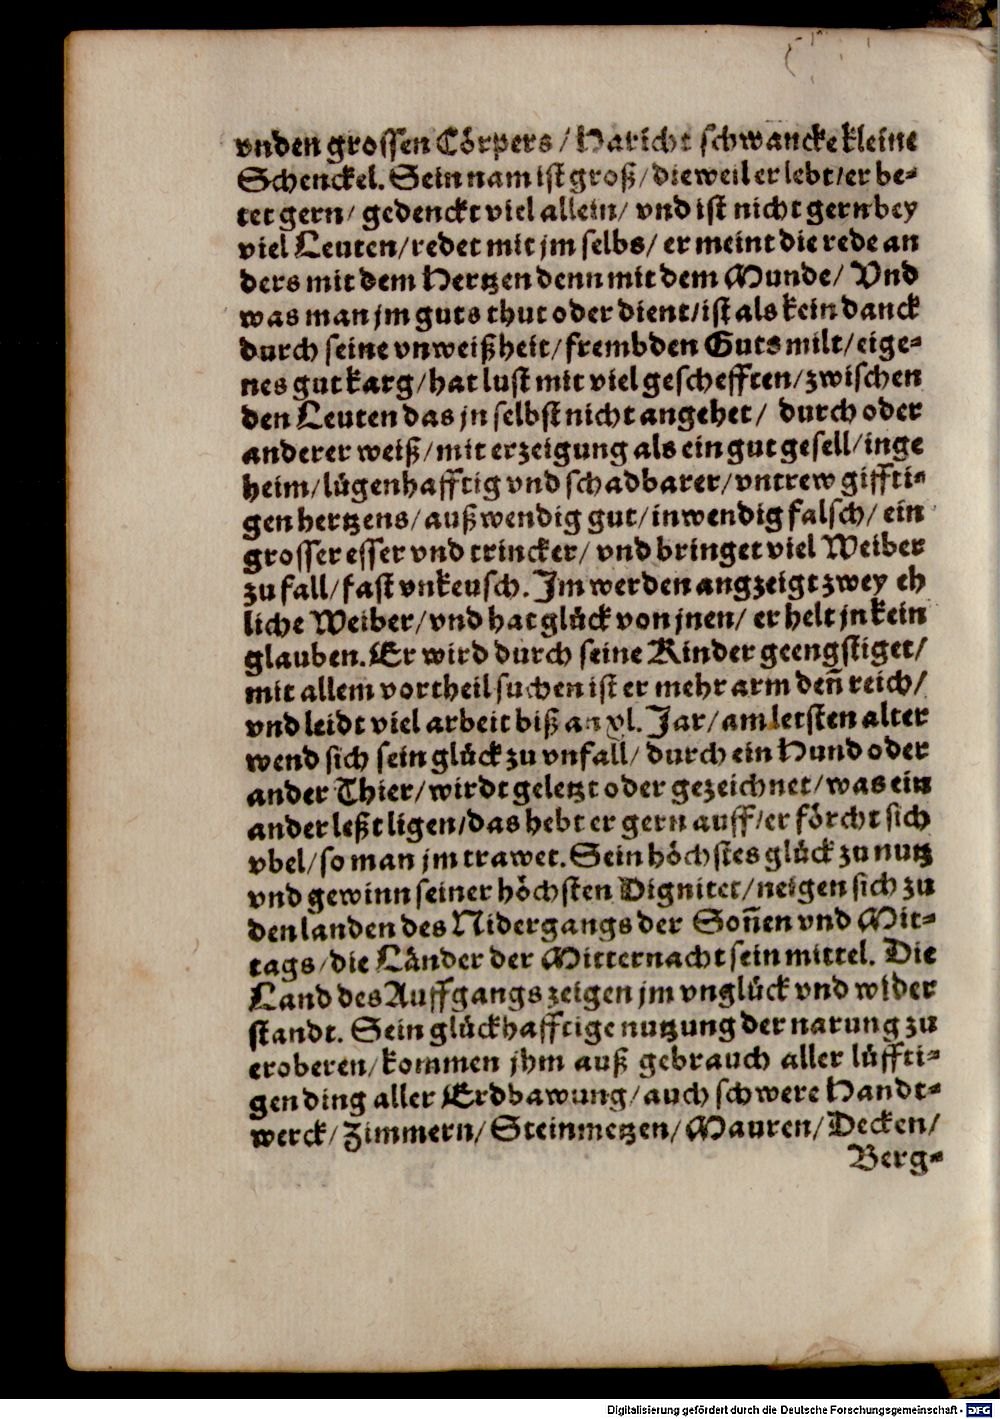 vnden grossen Cörpers / Haricht schwancke kleine
Schenckel. Sein nam ist groß / dieweil er lebt / er be-
tet gern / gedenckt viel allein / vnd ist nicht gern bey
viel Leuten / redet mit jm selbs / er meint die rede an
ders mit dem Hertzen denn mit dem Munde / Vnd
was man jm guts thut oder dient / ist als kein danck
durch seine vnweißheit / frembden Guts milt / eige-
nes gut karg / hat lust mit viel geschefften / zwischen
den Leuten das jn selbst nicht angehet / durch oder
anderer weiß / mit erzeigung als ein gut gesell / inge
heim / lügenhafftig vnd schadbarer / vntrew giffti-
gen hertzens / außwendig gut / inwendig falsch / ein
grosser esser vnd trincker / vnd bringet viel Weiber
zu fall / fast vnkeusch. Im werden angzeigt zwey eh
liche Weiber / vnd hat glück von jnen / er helt jn kein
glauben. Er wird durch seine Kinder geengstiget /
mit allem vortheil suchen ist er mehr arm deñ reich /
vnd leidt viel arbeit biß an xl. Jar / am letsten alter
wend sich sein glück zu vnfall / durch ein Hund oder
ander Thier / wirdt geletzt oder gezeichnet / was ein
ander leßt ligen / das hebt er gern auff / er förcht sich
vbel / so man jm trawet. Sein höchstes glück zu nutz
vnd gewinn seiner höchsten Dignitet / neigen sich zu
den landen des Nidergangs der Soñen vnd Mit-
tags / die Länder der Mitternacht sein mittel. Die
Land des Auffgangs zeigen jm vnglück vnd wider
standt. Sein glückhafftige nutzung der narung zu
eroberen / kommen jhm auß gebrauch aller lüffti-
gen ding aller Erdbawung / auch schwere Handt-
werck / Zimmern / Steinmetzen / Mauren / Decken /
Berg-
Digitalisierung gefördert durch die Deutsche Forschungsgemeinschaft - DFG